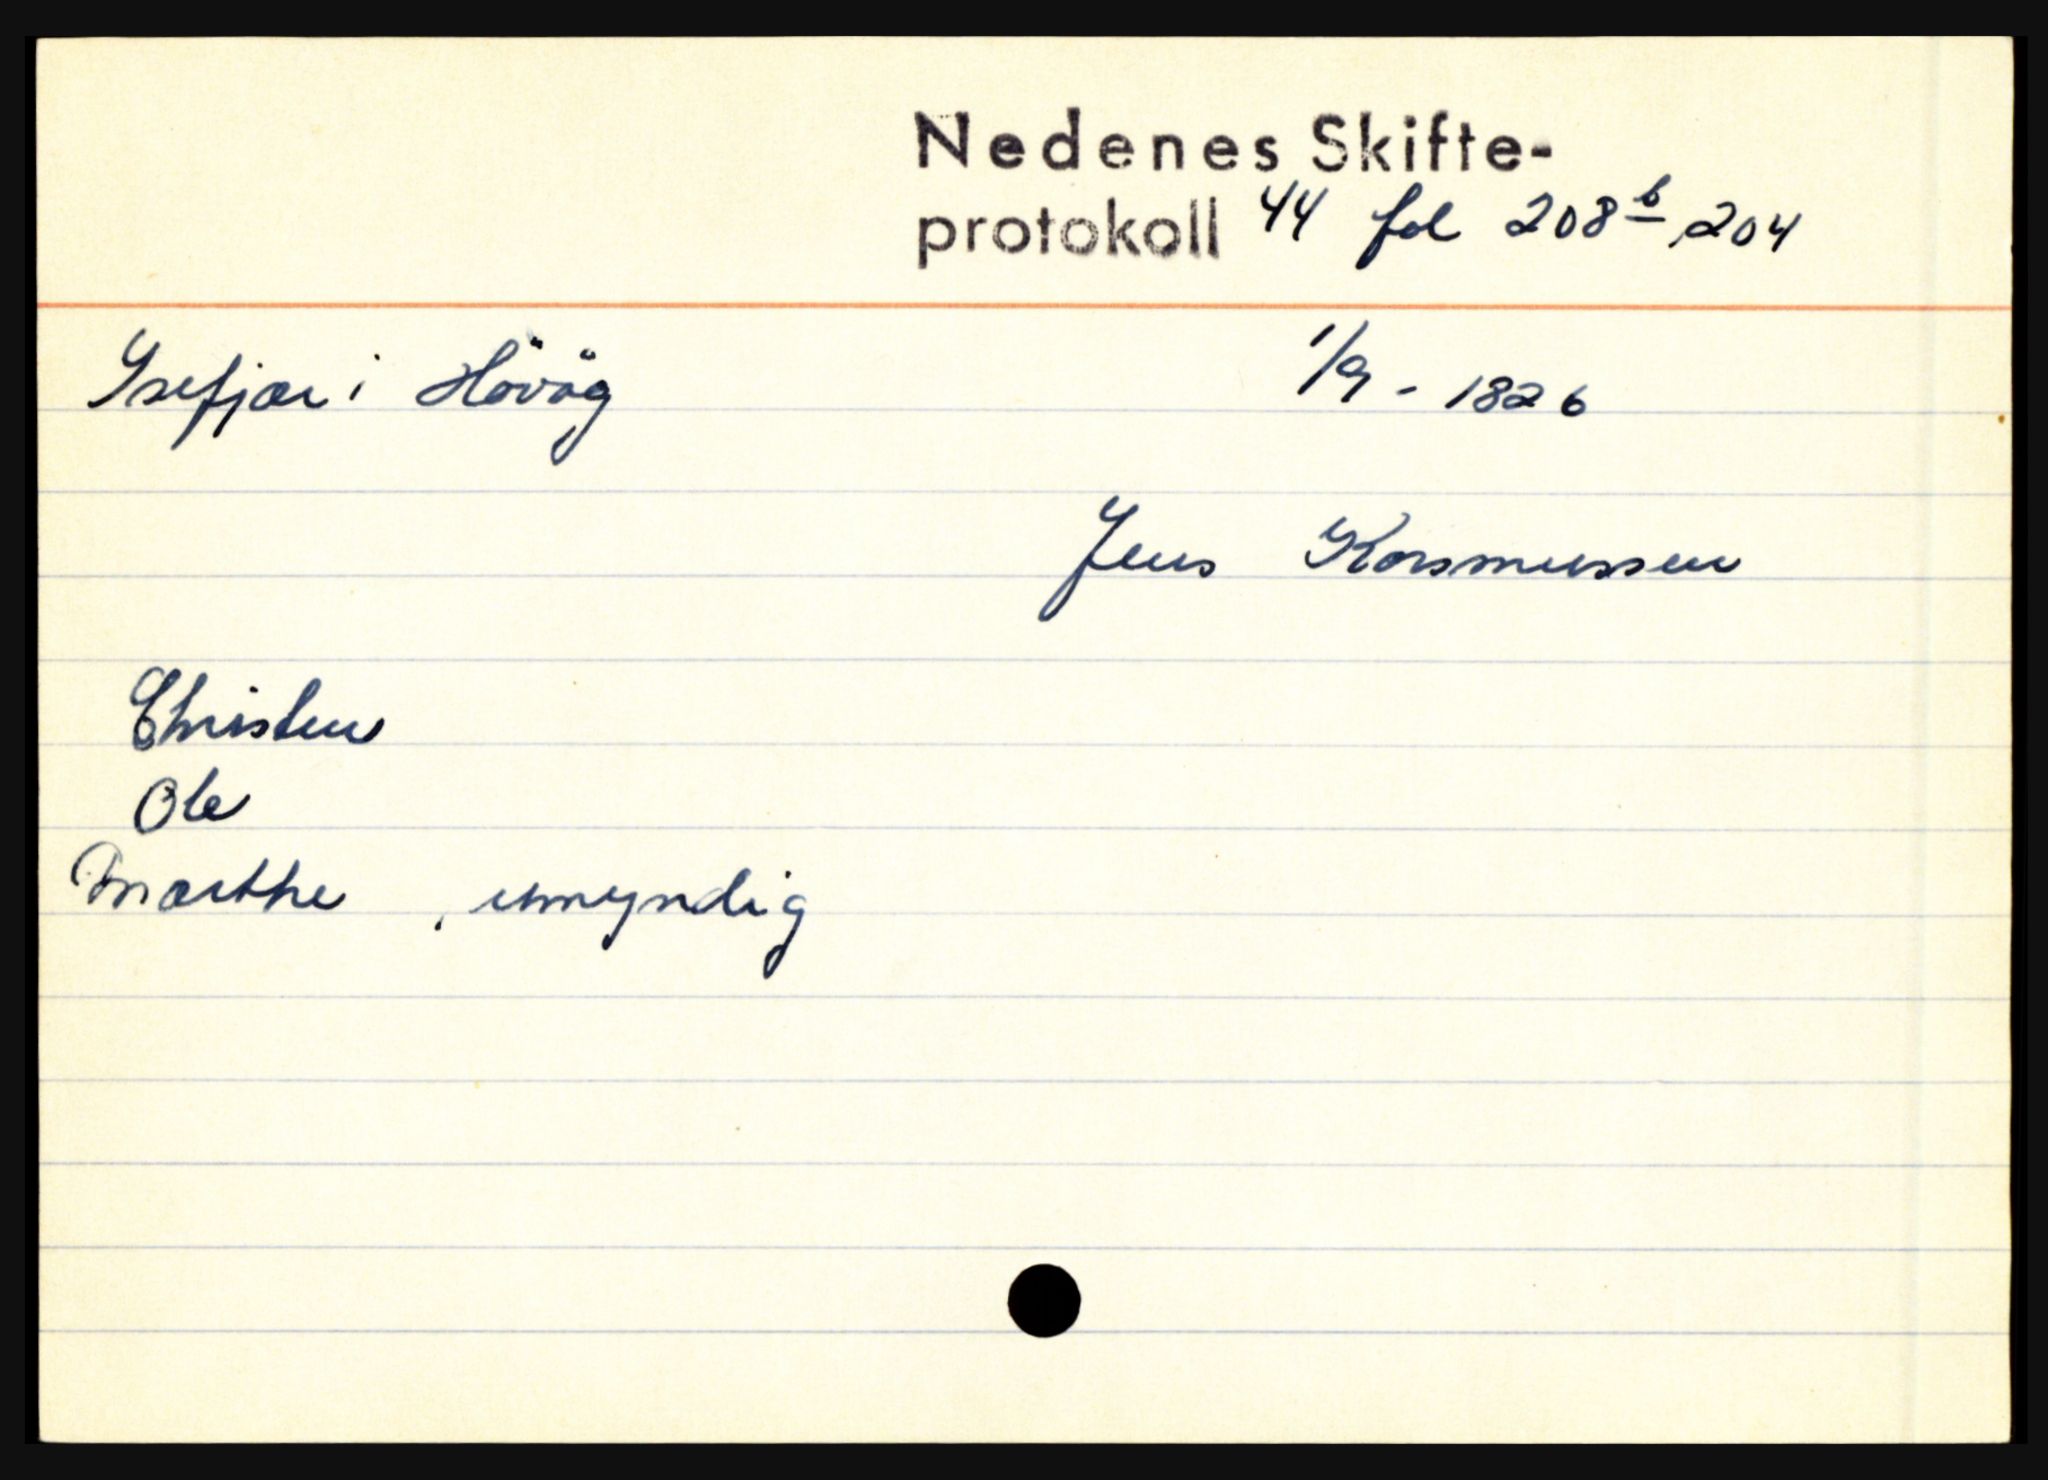 Nedenes Skifte-
protokoll 44 fol 208 b, 204
Isefjær i Hövåg 1/9 - 1826
Jens Rasmussen
Christen
Ole
Marthe , umyndig